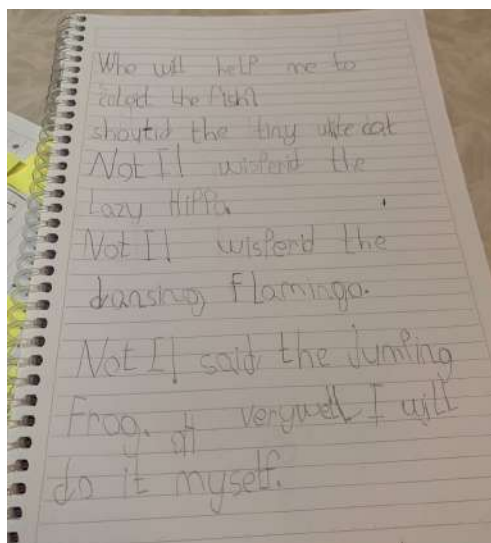 Who will help me to
colect the fish?
shoutid the tiny wite cat
Not I! wisperid the
Lazy Hippo.
Not I! wisperid the
dansing flamingo.
Not I! said the Jumping
Frog. verywell I will
do it myself.